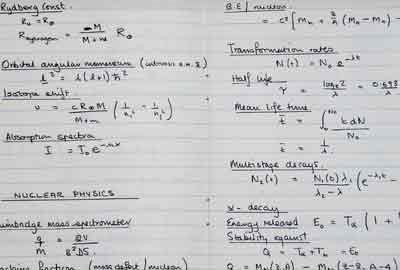 Rydberg Const.
R₀ = R∞
R hydrogen = M / M+m R∞
Orbital angular momentum
l² = l(l+1)ħ²
Isotope shift.
ν = cR∞M / M+m (1/n₁² - 1/n₂²)
Absorption spectra
I = I₀e
NUCLEAR PHYSICS
mass spectrometer
q/m =
(mass defect / nucleon)
B.E / nucleon
= c² [Mₙ + (Mₙ - Mₙ) -
Transformation rates
N(t) = N₀ e^-λt
Half life
τ = logₑ2 / λ = 0.693
Mean life time
t̄ = ∫₀^N₀ t dN / N₀
t̄ = 1/λ
Multistage decays.
N₂(t) = N₁(0) λ₁ / λ₂ - λ₁ (e^-λ₁t -
α - decay
Energy released E₀ = Tα (1 +
Stability against
Q = Tα + Tₕ = E₀